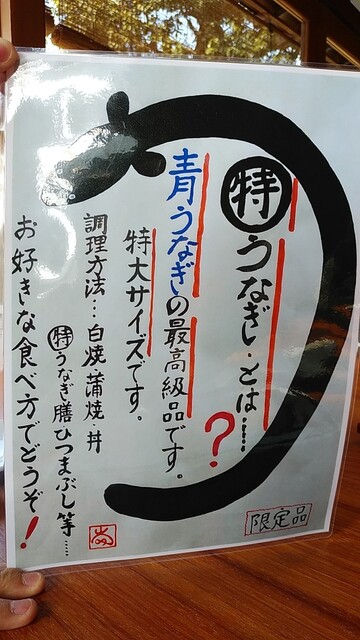 特うなぎ・とは……?
青うなぎの最高級品です。
特大サイズです。
調理方法…白焼・蒲焼・丼
特うなぎ膳ひつまぶし等……
お好きな食べ方でどうぞ!
限定品